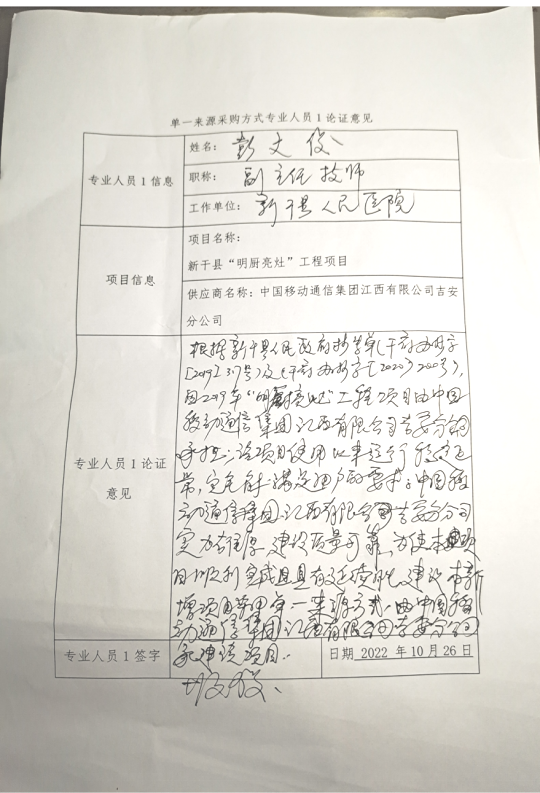 单一来源采购方式专业人员1论证意见
专业人员1信息
姓名：彭文俊
职称：副主任技师
工作单位：新干县人民医院
项目信息
项目名称：
新干县“明厨亮灶”工程项目
供应商名称：中国移动通信集团江西有限公司吉安
分公司
专业人员1论证
意见
根据新干县人民政府抄告单（干府办抄字
[2019]317号）及（干府办抄字[2020]200号），
因2019年“明厨亮灶”工程项目由中国
移动通信集团江西有限公司吉安分公司
承担，该项目使用以来运行稳定正
常，完全能满足用户的要求，中国移
动通信集团江西有限公司吉安分公司
实力雄厚，建设质量可靠，为使本项
目顺利完成且具有延续性，建议本新
增项目采用单一来源方式，由中国移
动通信集团江西有限公司吉安分公司
承建该项目。
专业人员1签字
日期 2022年10月26日